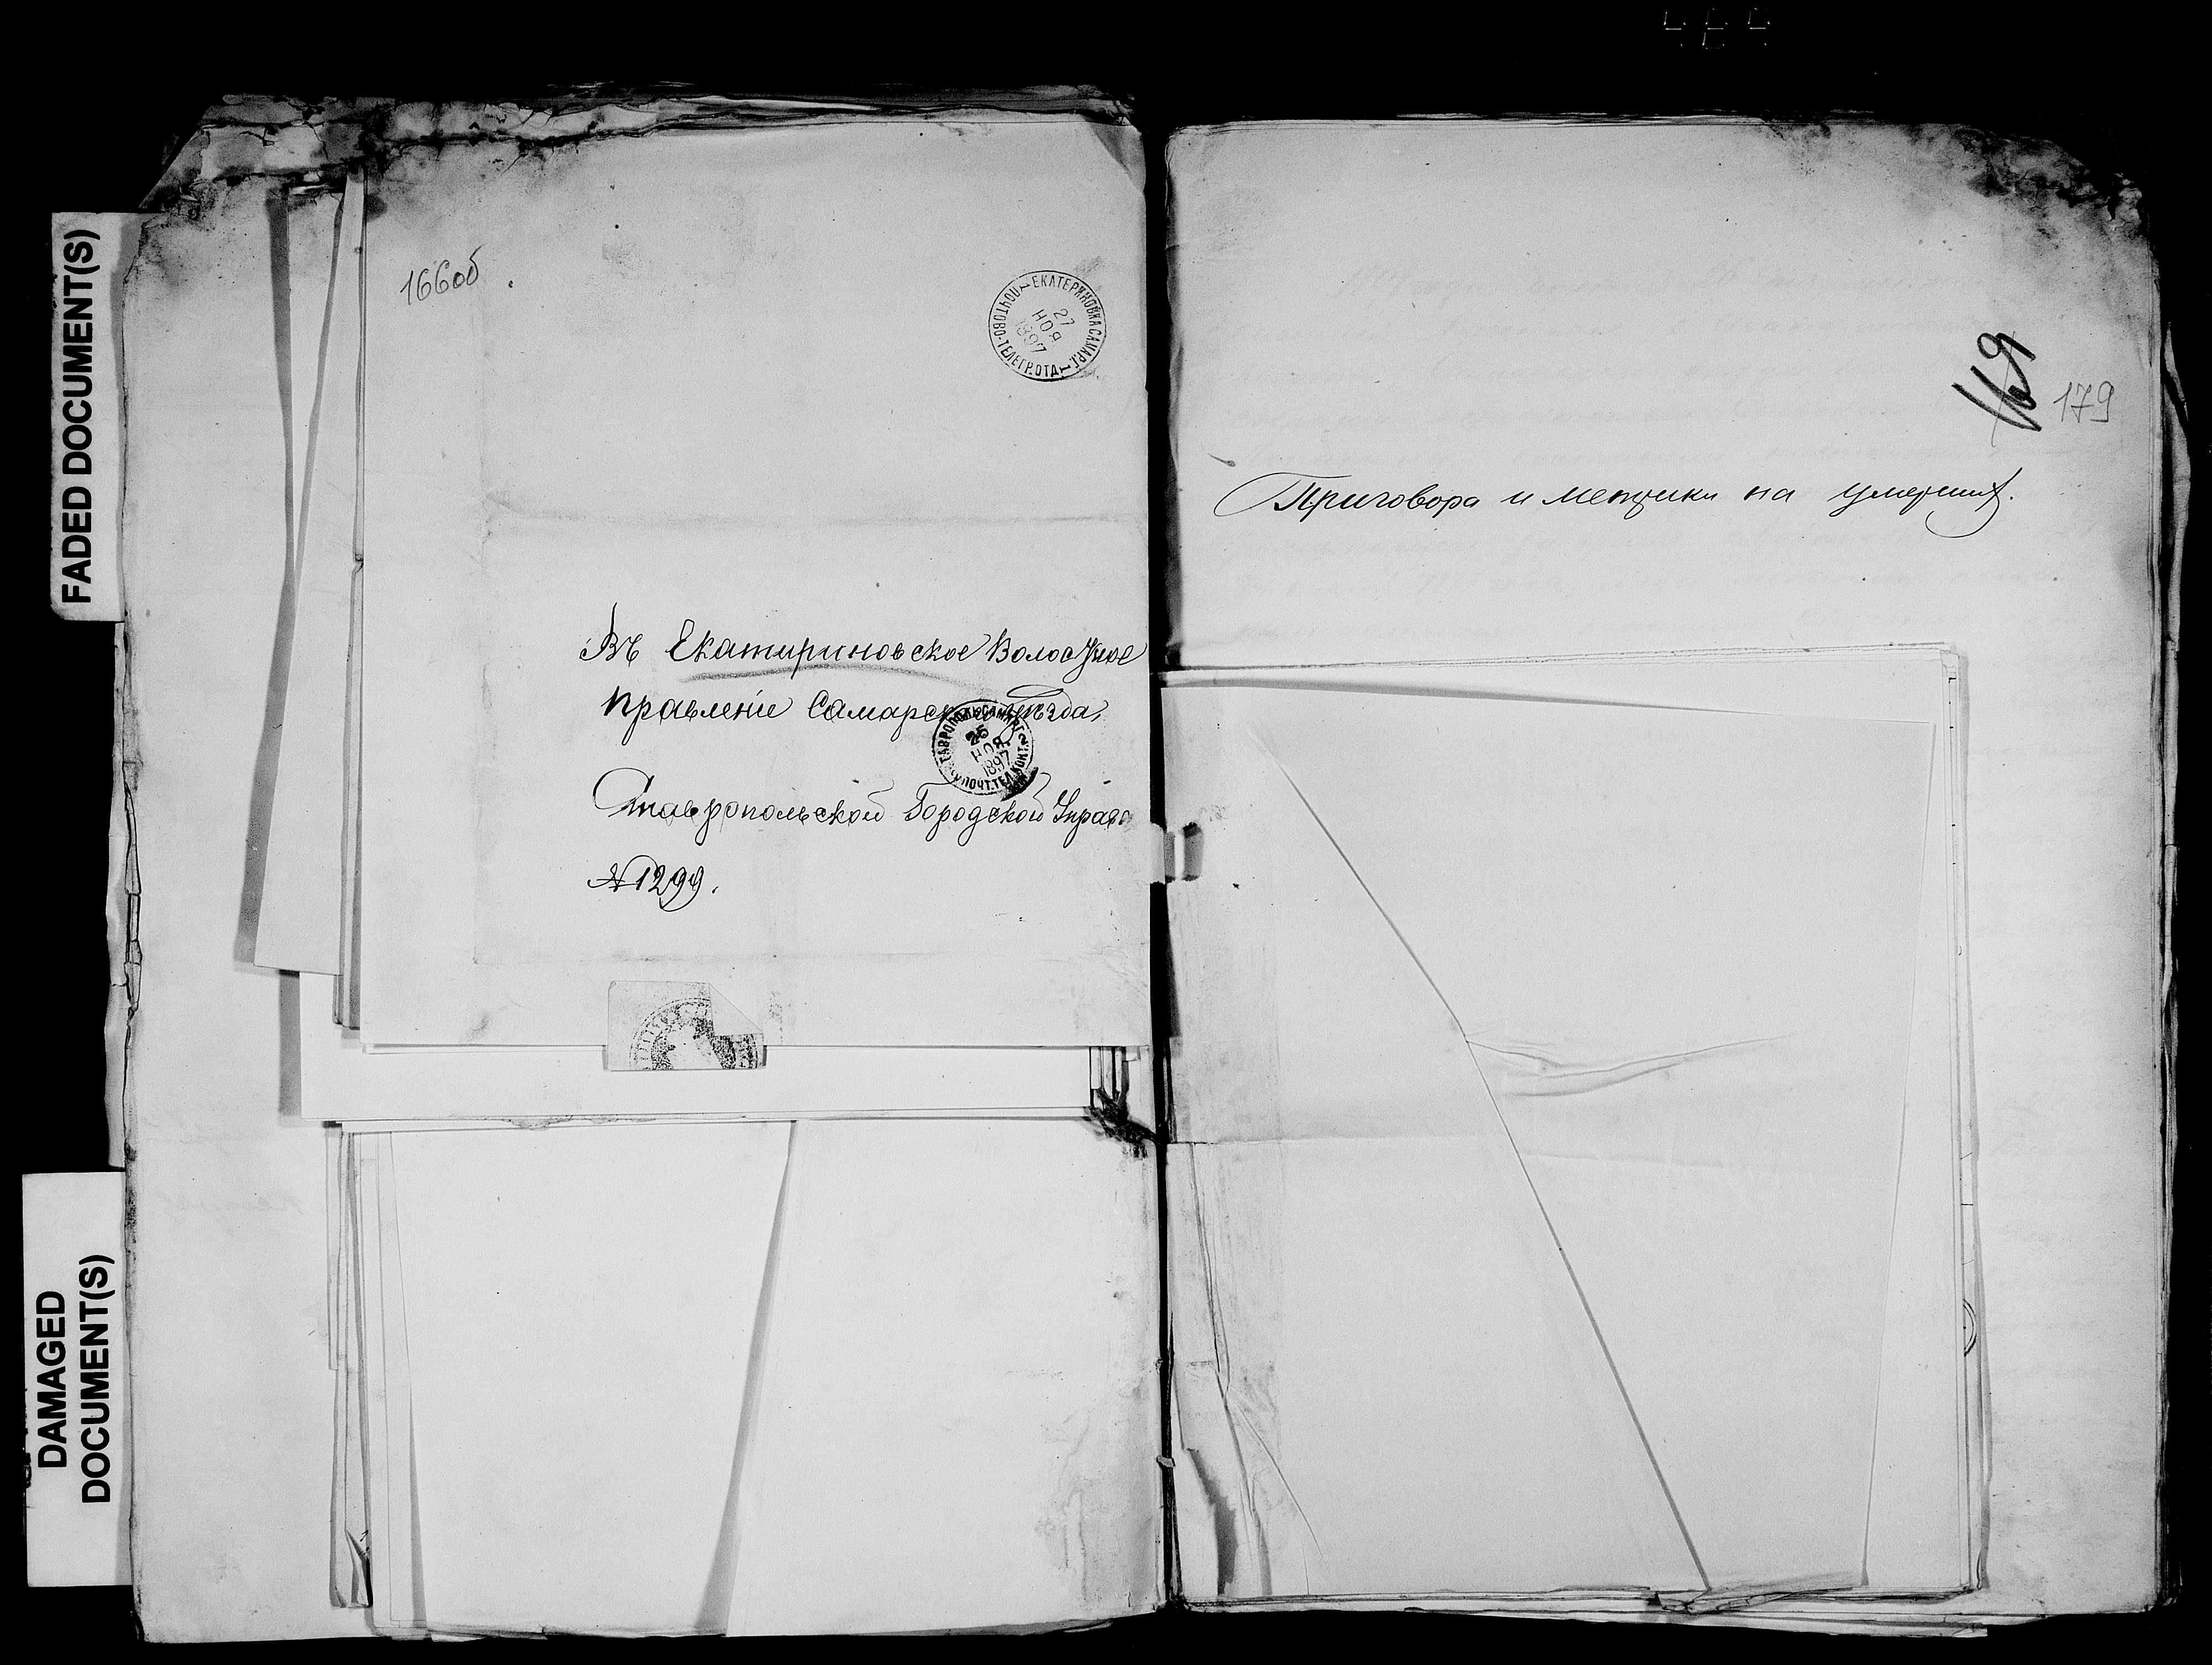 FADED DOCUMENT(S)
DAMAGED
DOCUMENT(S)
166об
ЕКАТЕРИНОВКА САМАР. Г.
ПОЧТОВО-ТЕЛЕГР. ОТД.
27
НОЯ
1897
Въ Екатириновское Волостное
правленіе Самарскаго уѣзда,
СТАВРОПОЛЬ САМАР. Г.
25
НОЯ
1897
ПОЧТ. ТЕЛ. КОНТ.
Ставропольской Городской Управ
№ 1299.
169
179
Приговора и метрики на умерших.